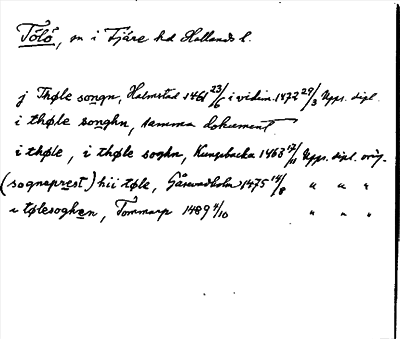 Tölö, sn i Fjäre hd Hallands l.
j Thøle songn, Halmstad 1461 23/6 i vidim. 1472 29/3 Upps. dipl.
i thøle songhn, samma dokument
i thøle, i thøle soghn, Kungsbacka 1468 17/11 Upps. dipl. orig.
(sogneprest) hii tøle, 1475 14/8 " " "
i tølesoghen, Tommarp 1489 4/10 " " "